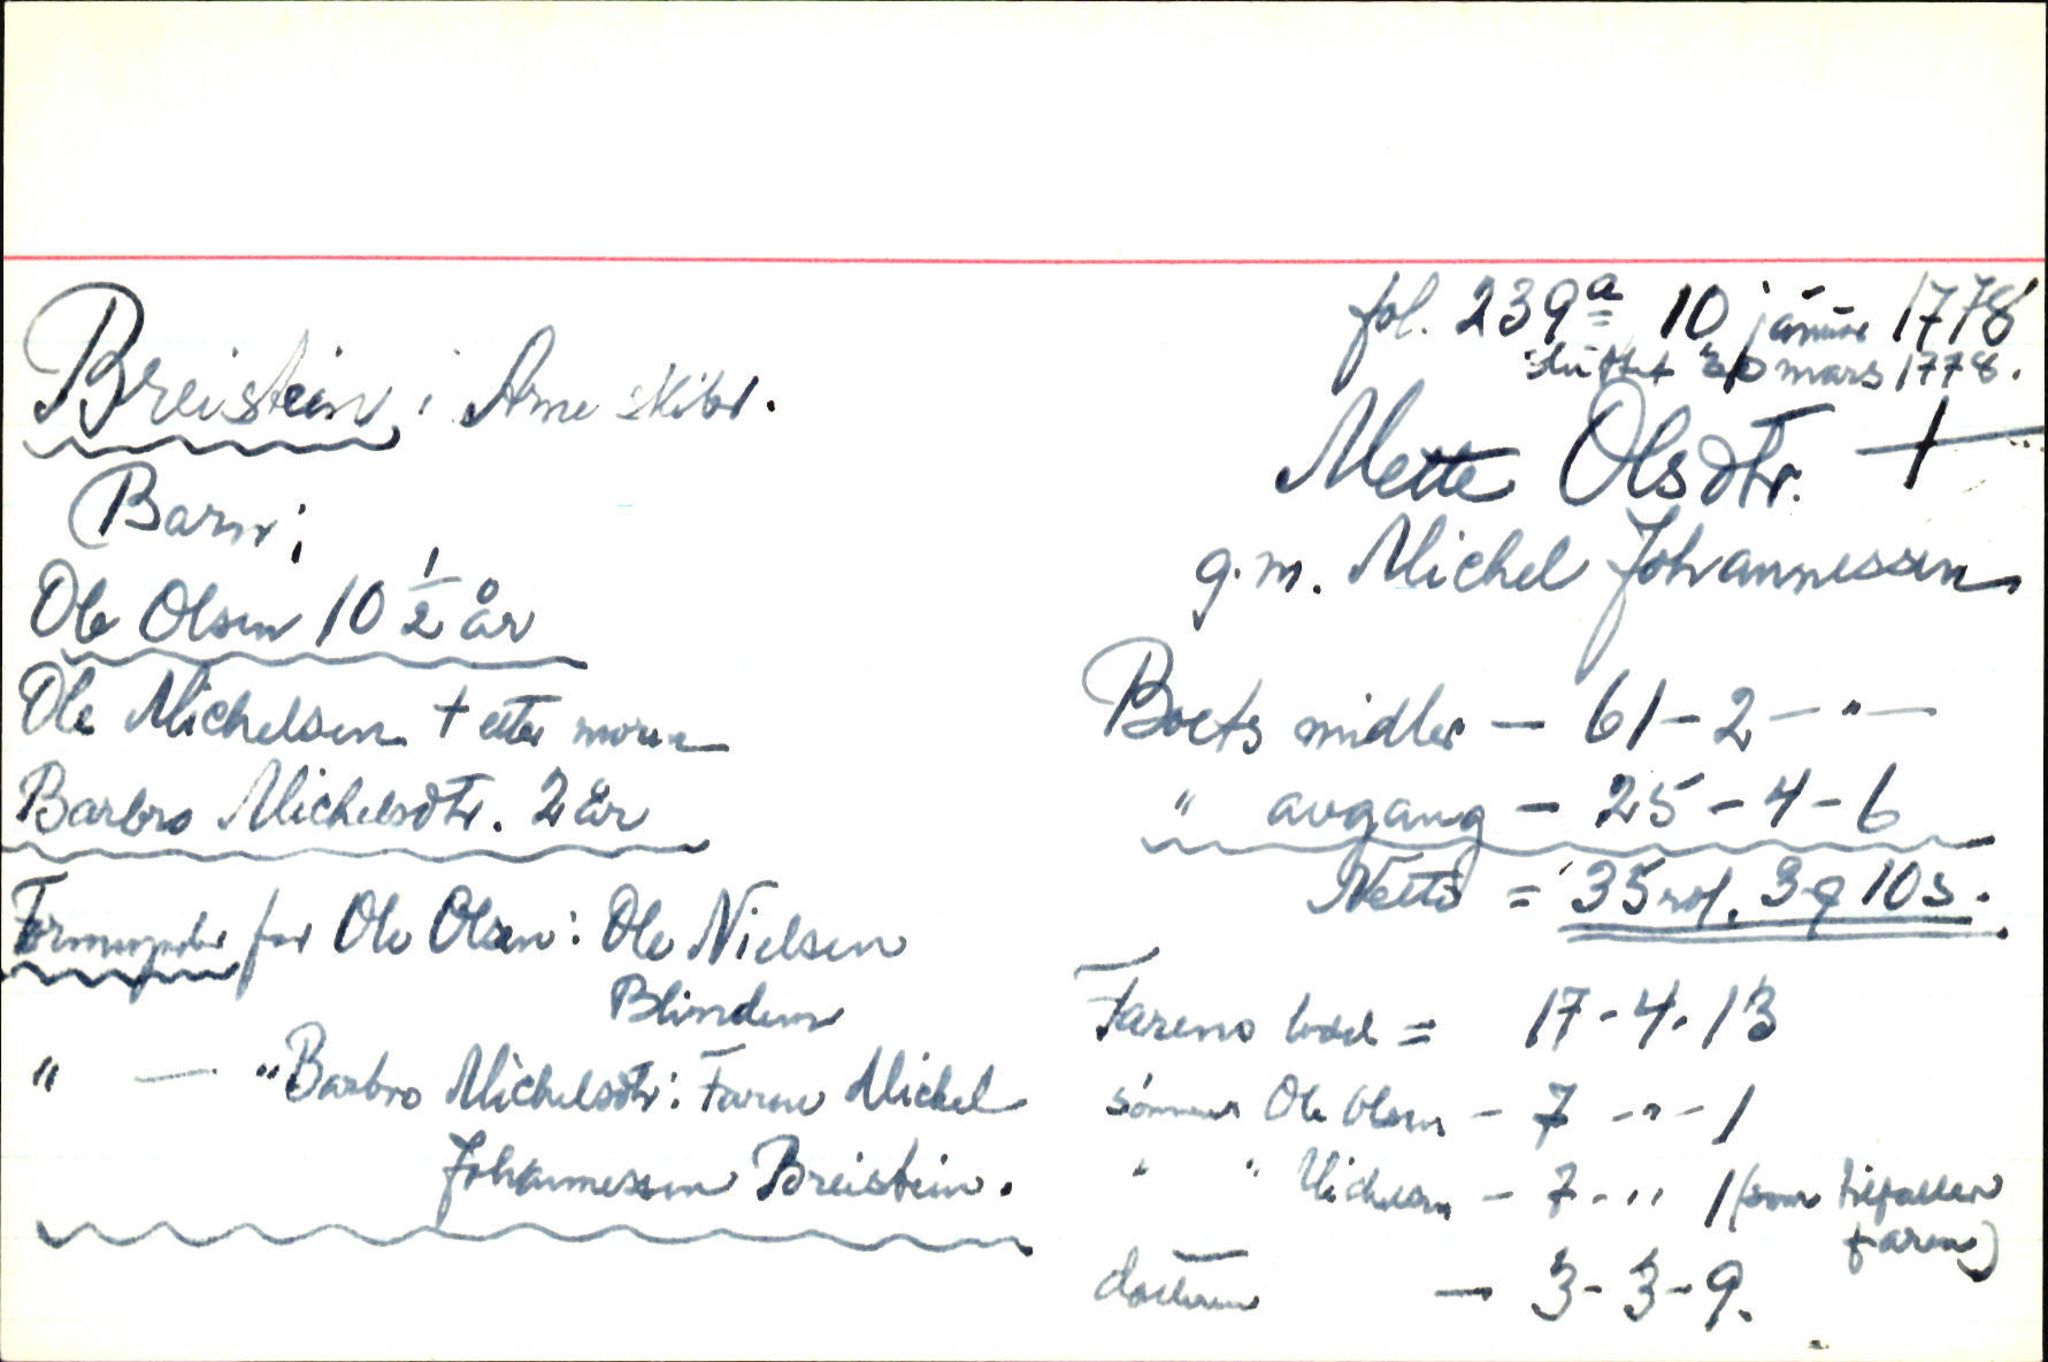 fol. 239a 10 januar 1778
sluttet 30 mars 1778.
Breistein; Arne skibr.
Mette Olsdtr. +
g.m. Michel Johannessen
Barn;
Ole Olsen 10 1/2 år
Ole Michelsen + etter moren
Barbro Michelsdtr. 2 år
Formynder for Ole Olsen: Ole Nielsen
Blindem
" — " Barbro Michelsdtr: Faren Michel
Johannessen Breistein.
Boets midler — 61 - 2 — " —
" avgang — 25 - 4 - 6
Netto = 35 rd. 3 q 10 s.
Farens lodd = 17 - 4 - 13
sønnen Ole Olsen - 7 - " - 1
" " Michelsen - 7 - " 1 (som tilfaller
faren)
datteren — 3 - 3 - 9.